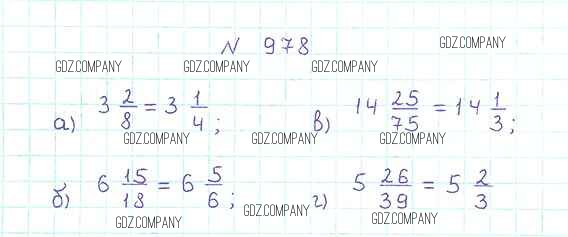 N 978 GDZ.COMPANY
GDZ.COMPANY GDZ.COMPANY GDZ.COMPANY
а) 3 2/8 = 3 1/4; в) 14 25/75 = 14 1/3;
GDZ.COMPANY GDZ.COMPANY GDZ.COMPANY
б) 6 15/18 = 6 5/6; г) 5 26/39 = 5 2/3
GDZ.COMPANY GDZ.COMPANY GDZ.COMPANY